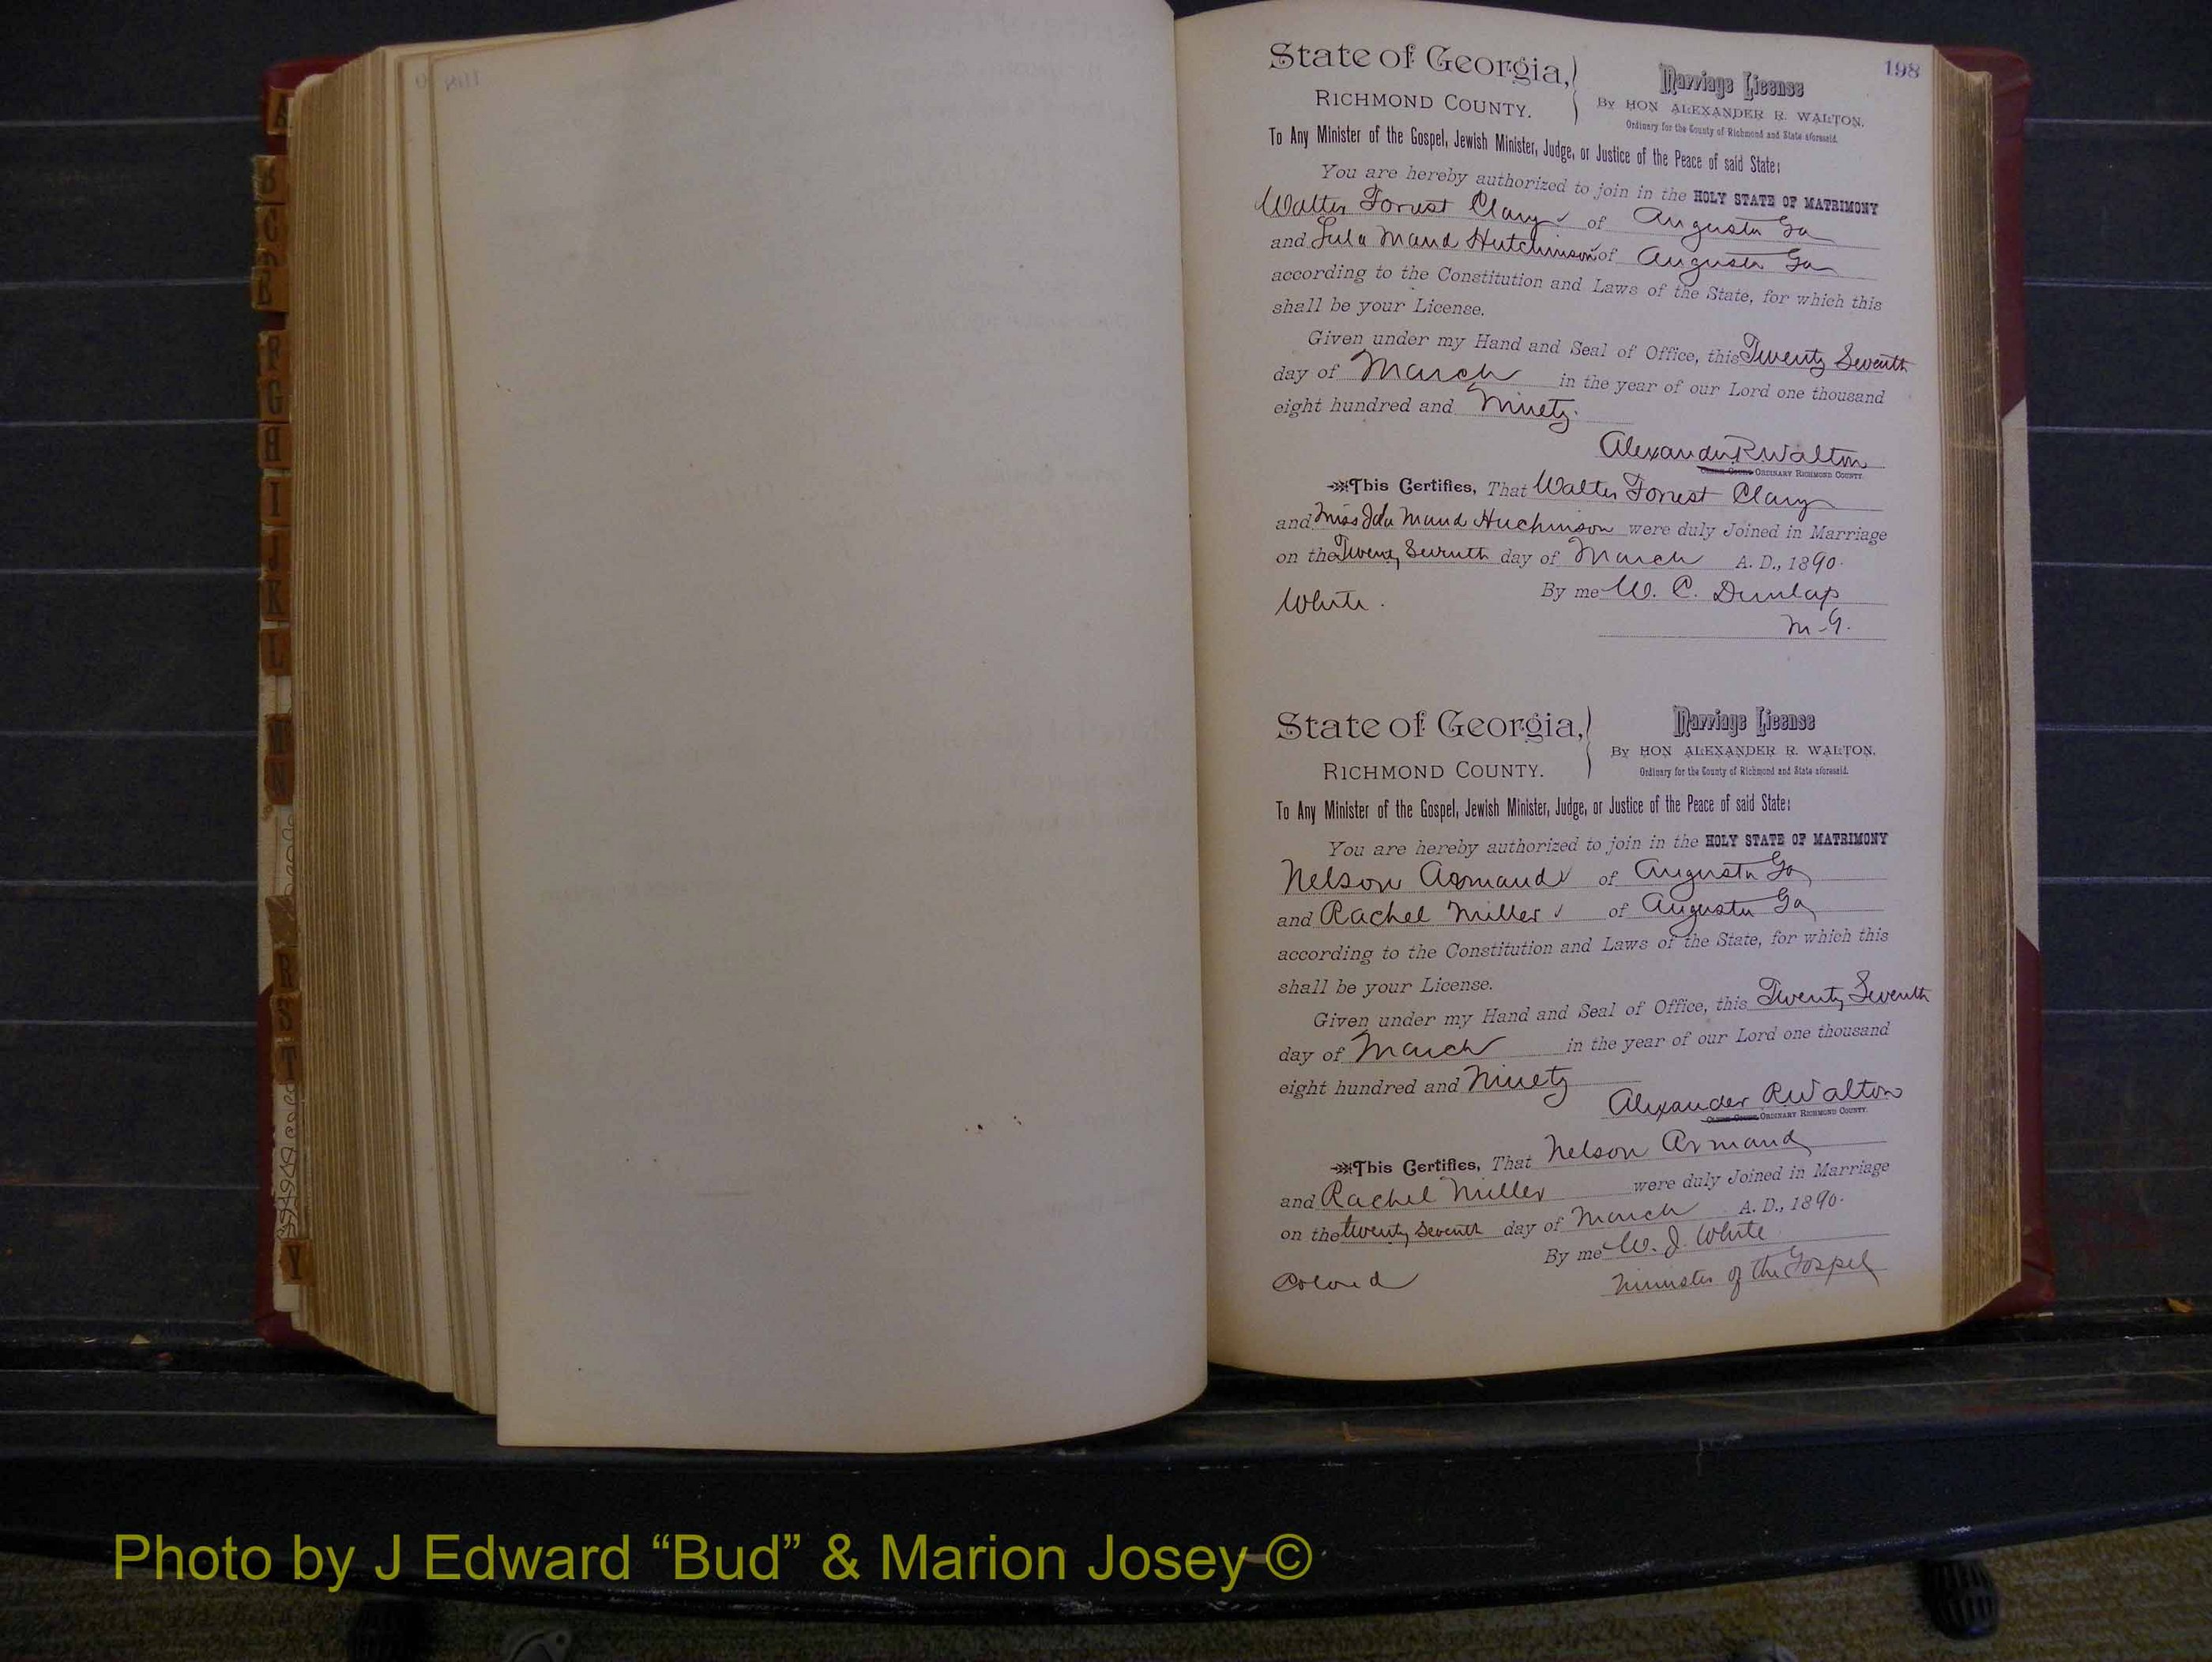 198
State of Georgia,
RICHMOND COUNTY.
Marriage License
By HON ALEXANDER R. WALTON,
Ordinary for the County of Richmond and State aforesaid.
To Any Minister of the Gospel, Jewish Minister, Judge, or Justice of the Peace of said State:
You are hereby authorized to join in the HOLY STATE OF MATRIMONY
Walter Forrest Clary of Augusta Ga
and Lula Maud Hutchinson of Augusta Ga
according to the Constitution and Laws of the State, for which this
shall be your License.
Given under my Hand and Seal of Office, this Twenty Seventh
day of March in the year of our Lord one thousand
eight hundred and Ninety.
Alexander R Walton
ORDINARY RICHMOND COUNTY.
This Certifies, That Walter Forrest Clary
and Miss Ida Maud Huchinson were duly Joined in Marriage
on the Twenty Seventh day of March A. D., 1890.
By me W. C. Dunlap
White.
M-G.
State of Georgia,
RICHMOND COUNTY.
Marriage License
By HON ALEXANDER R. WALTON,
Ordinary for the County of Richmond and State aforesaid.
To Any Minister of the Gospel, Jewish Minister, Judge, or Justice of the Peace of said State:
You are hereby authorized to join in the HOLY STATE OF MATRIMONY
Nelson Armand of Augusta Ga
and Rachel Miller of Augusta Ga
according to the Constitution and Laws of the State, for which this
shall be your License.
Given under my Hand and Seal of Office, this Twenty Seventh
day of March in the year of our Lord one thousand
eight hundred and Ninety
Alexander R Walton
ORDINARY RICHMOND COUNTY.
This Certifies, That Nelson Armand
and Rachel Miller were duly Joined in Marriage
on the twenty seventh day of March A. D., 1890.
By me W. J. White
Colored
Minister of the Gospel
Photo by J Edward “Bud” & Marion Josey ©